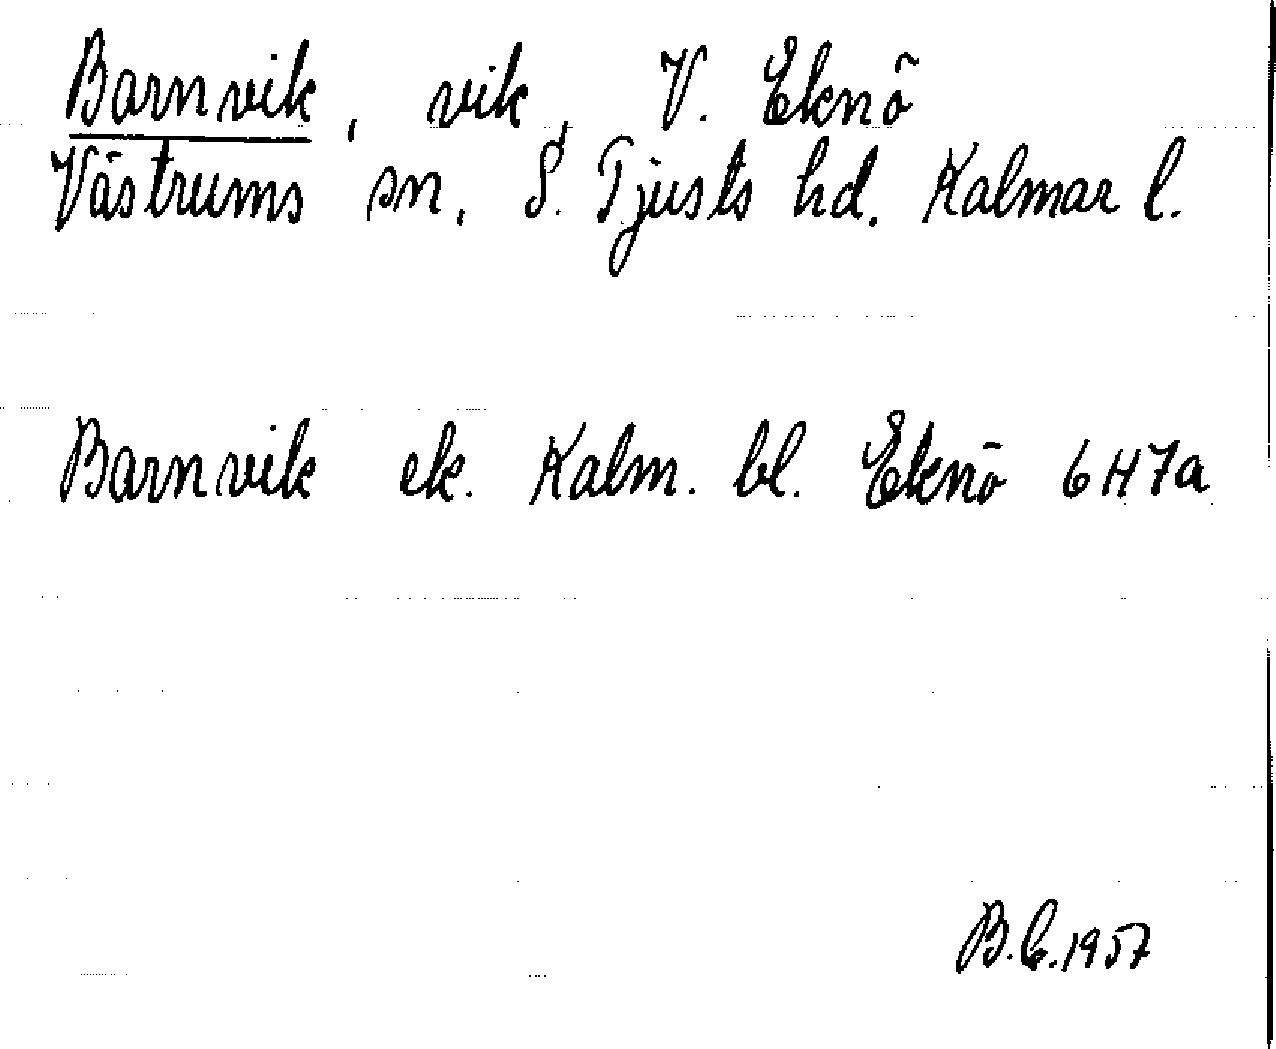 Barnvik, vik, V. Eknö
Västrums sn, S. Tjusts hd. Kalmar l.
Barnvik ek. Kalm. bl. Eknö 6H7a
B.C.1957